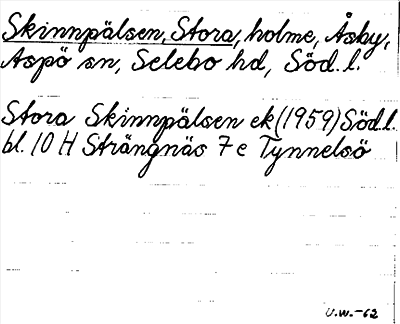 Skinnpälsen, Stora, holme, Åsby,
Aspö sn, Selebo hd, Söd. l.
Stora Skinnpälsen ek (1959) Söd.l.
bl. 10 H Strängnäs 7 e Tynnelsö
U.W.-62